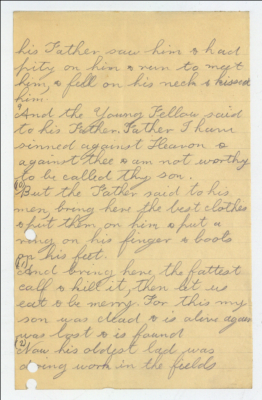 his Father saw him & had
pity on him & ran to meet
him, & fell on his neck & kissed
him.
And the Young Fellow said
to his Father. Father I have
sinned against Heaven &
against thee & am not worthy
to be called thy son.
But the Father said to his
men, bring here the best clothes
& put them on him & put a
ring on his finger & boots
on his feet.
And bring here the fattest
calf & kill it, then let us
eat & be merry. For this my
son was dead & is alive again
was lost & is found
Now his oldest lad was
doing work in the fields